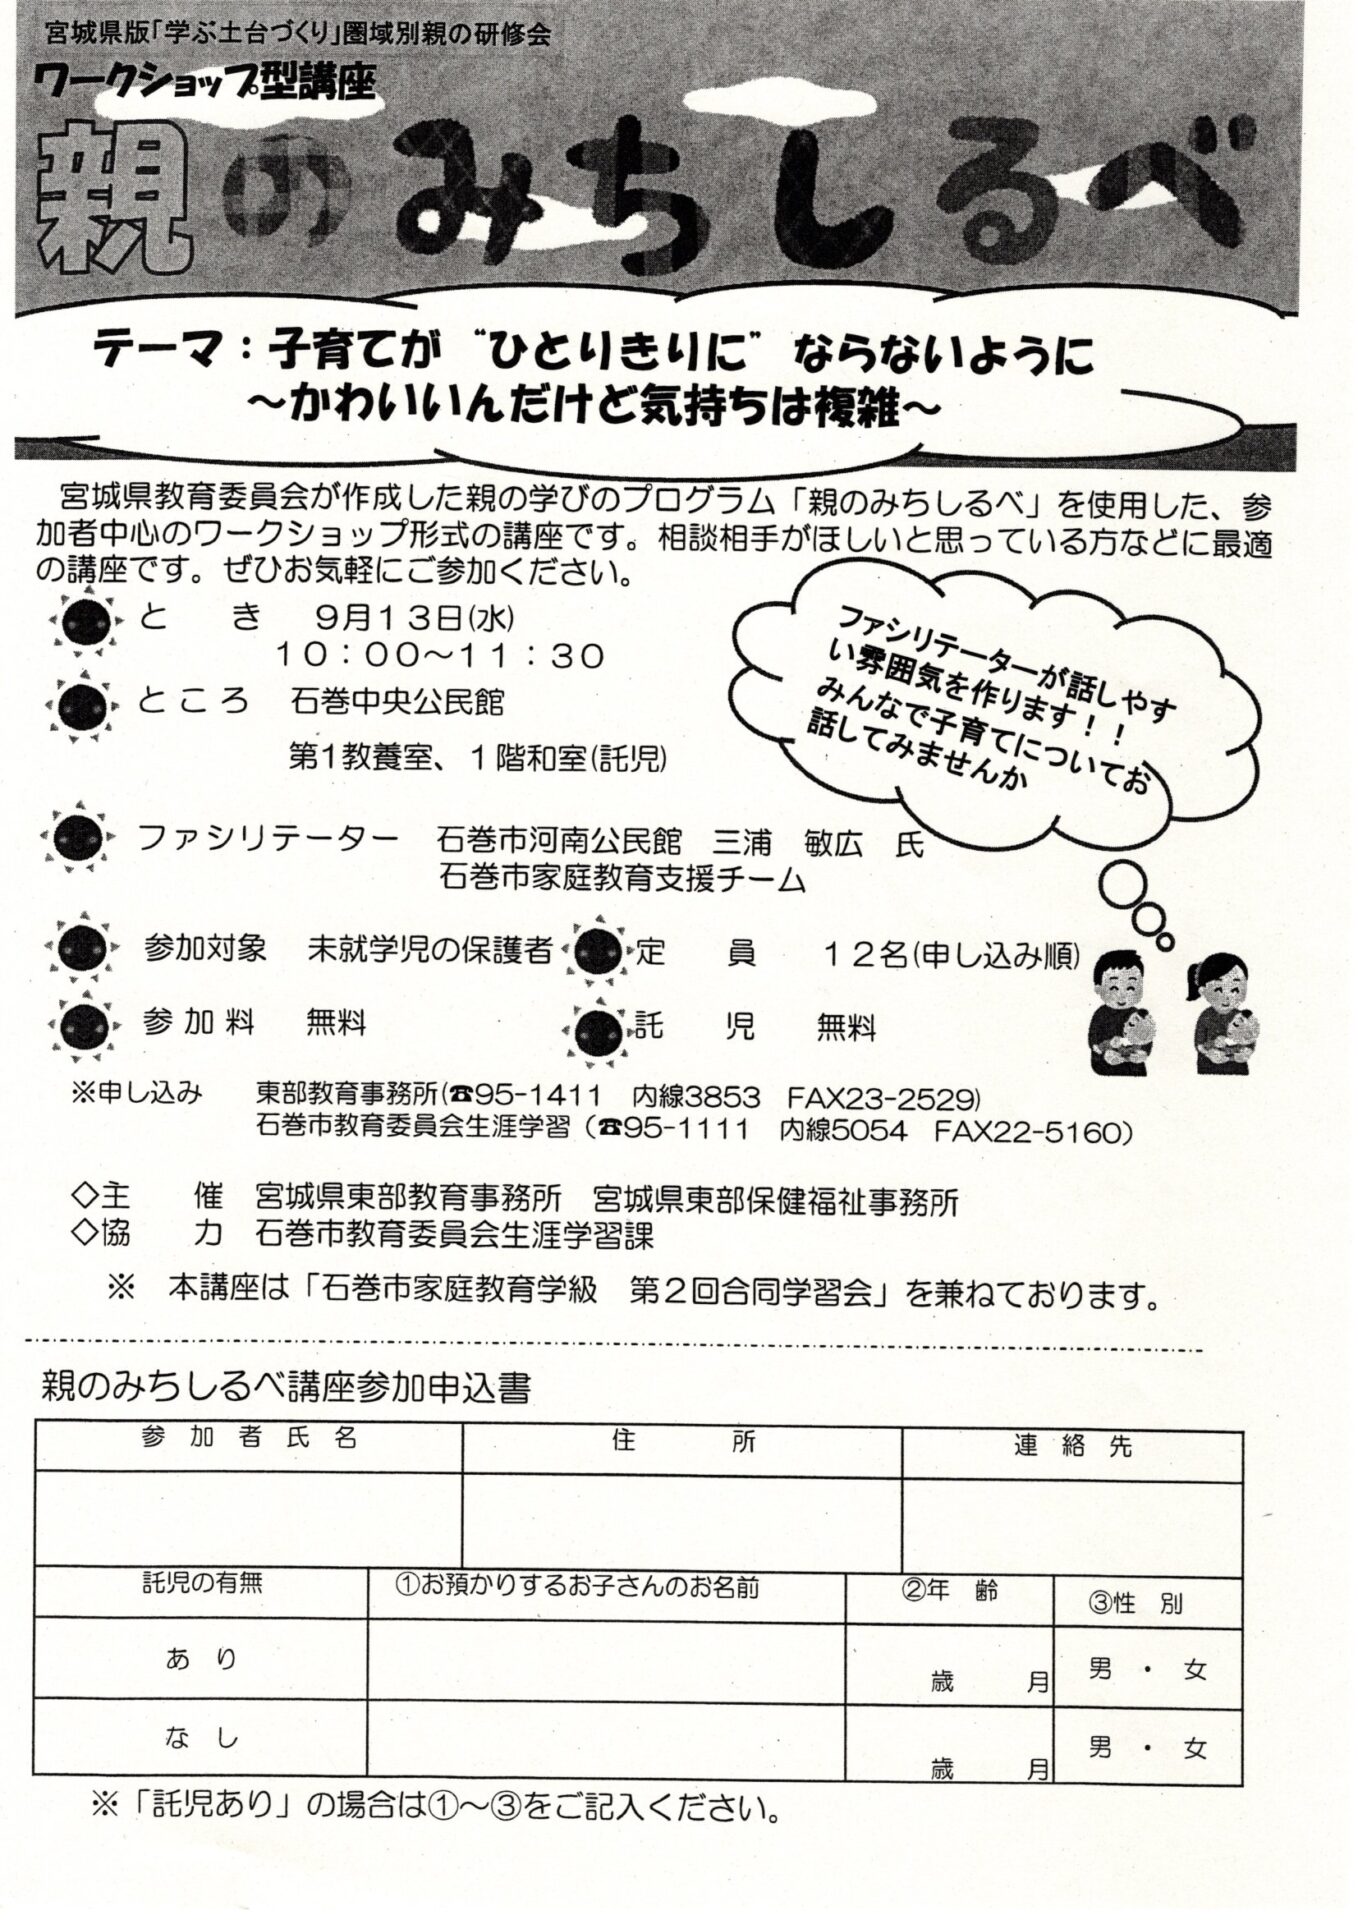 宮城県版「学ぶ土台づくり」圏域別親の研修会
ワークショップ型講座
親のみちしるべ
テーマ：子育てが“ひとりきりに”ならないように
～かわいいんだけど気持ちは複雑～
宮城県教育委員会が作成した親の学びのプログラム「親のみちしるべ」を使用した、参
加者中心のワークショップ形式の講座です。相談相手がほしいと思っている方などに最適
の講座です。ぜひお気軽にご参加ください。
と　き　９月１３日(水)
１０：００～１１：３０
ところ　石巻中央公民館
第１教養室、１階和室(託児)
ファシリテーターが話しやす
い雰囲気を作ります！！
みんなで子育てについてお
話してみませんか
ファシリテーター　石巻市河南公民館　三浦　敏広　氏
石巻市家庭教育支援チーム
参加対象　未就学児の保護者　定　員　１２名(申し込み順)
参加料　無料　託　児　無料
※申し込み　東部教育事務所(☎95-1411　内線3853　FAX23-2529)
石巻市教育委員会生涯学習（☎95-1111　内線5054　FAX22-5160）
◇主　催　宮城県東部教育事務所　宮城県東部保健福祉事務所
◇協　力　石巻市教育委員会生涯学習課
※　本講座は「石巻市家庭教育学級　第２回合同学習会」を兼ねております。
親のみちしるべ講座参加申込書
参加者氏名　住　所　連絡先
託児の有無　①お預かりするお子さんのお名前　②年　齢　③性　別
あり　歳　月　男　・　女
なし　歳　月　男　・　女
※「託児あり」の場合は①～③をご記入ください。